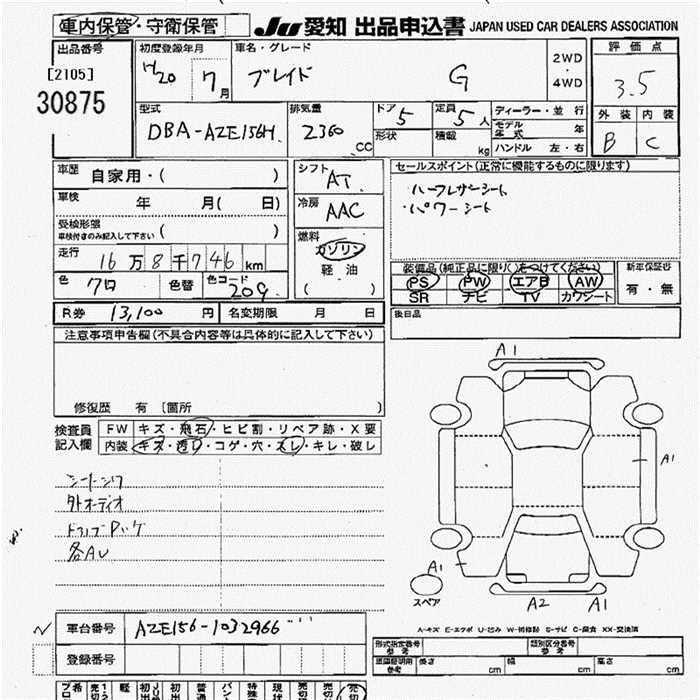 車内保管・守衛保管 JU 愛知 出品申込書 JAPAN USED CAR DEALERS ASSOCIATION
出品番号 初度登録年月 車名・グレード 2WD・4WD 評価点
[2105] H20 7月 ブレイド G 3.5
30875
外装 内装
B C
型式 排気量 ドア 定員 ディーラー・並行
DBA-AZE156H 2360 CC 5 5人 モデル年式 年
形状 積載 kg ハンドル 左・右
車歴 自家用・( ) シフト AT セールスポイント(正常に機能するものに限ります)
・ハーフレザーシート
・パワーシート
車検 年 月( 日) 冷房 AAC
受検形態
車検付きのみ記入して下さい ( ) 燃料 ガソリン
走行 16万8千746km 軽油
( )
装備品(純正品に限り○をつけてください) 新車保証書
PS PW エアB AW 有・無
SR ナビ TV カワシート
色 色替 色コード 209
後日品
R券 13,100円 名変期限 月 日
注意事項申告欄(不具合内容等は具体的に記入して下さい)
修復歴 有 [箇所 ]
検査員記入欄 FW キズ・飛石・ヒビ割・リペア跡・X要
内装 キズ・汚レ・コゲ・穴・スレ・キレ・破レ
シートシワ
外オーディオ
各AU
A1
A1
A1
A2 A1
スペア
A-キズ E-エクボ U-凹み W-補修跡 S-サビ C-腐食 XX-交換済
車台番号 AZE156-1032966
登録番号
形式指定番号 参考 類別区分番号 参考
車庫証明用 参考 長さ cm 幅 cm 高さ cm